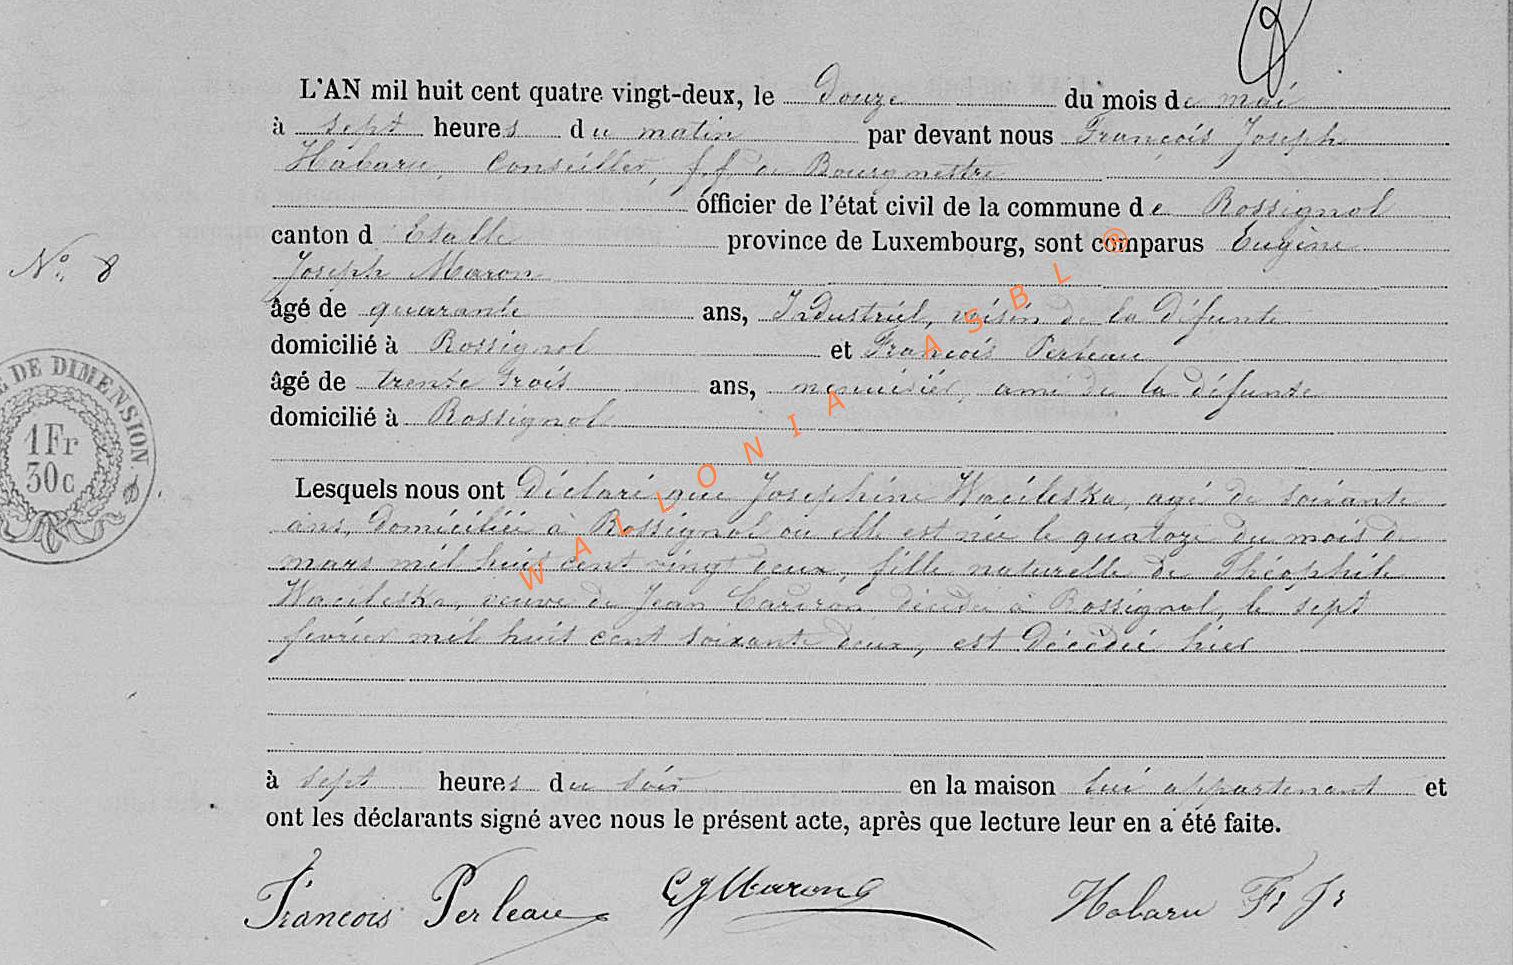 L'AN mil huit cent quatre vingt-deux, le douze du mois de mai
à sept heures du matin par devant nous François Joseph
Habaru, Conseiller, f.f. de Bourgmestre
officier de l'état civil de la commune de Rossignol
canton d'Etalle province de Luxembourg, sont comparus Eugène
Joseph Maron
âgé de quarante ans, Industriel, voisin de la défunte
domicilié à Rossignol et François Perleau
N° 8
âgé de trente trois ans, menuisier, ami de la défunte
domicilié à Rossignol
E DE DIMENSION.
1Fr
30c
Lesquels nous ont déclaré que Joséphine Wacileska, agée de soixante
ans, domiciliée à Rossignol où elle est née le quatorze du mois de
mars mil huit cent vingt deux, fille naturelle de Théophile
Wacileska, veuve de Jean décédé à Rossignol, le sept
février mil huit cent soixante deux, est décédée hier
à sept heures du soir en la maison lui appartenant et
ont les déclarants signé avec nous le présent acte, après que lecture leur en a été faite.
François Perleau EJMaron Habaru Fs Js
WALLONIA ASBL ®